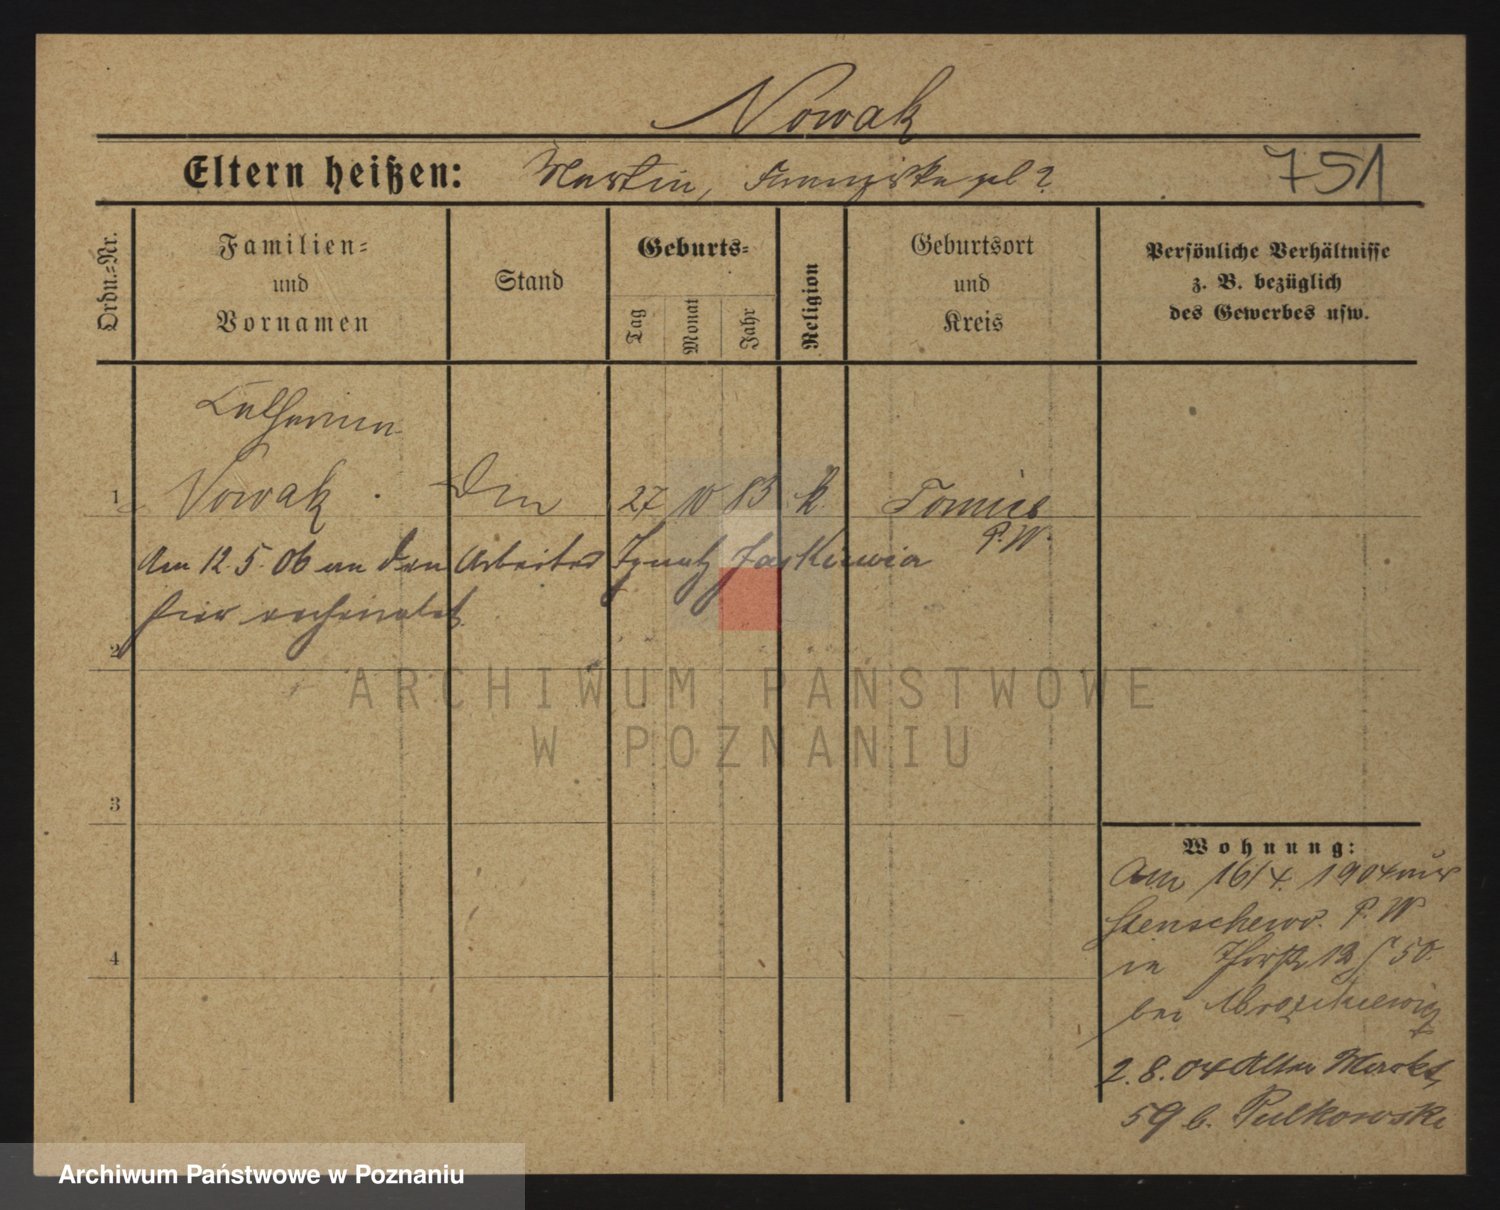 Nowak
Eltern heißen: Martin, Franziska gb ?
751
Ordn.-Nr.
Familien-
und
Vornamen
Stand
Geburts-
Tag
Monat
Jahr
Religion
Geburtsort
und
Kreis
Persönliche Verhältnisse
z. B. bezüglich
des Gewerbes usw.
Katharina
1 Nowak. 27 10 83 k. Tomice
P. W.
Am 12.5.06 an den Arbeiter Ignatz
hier verheiratet
2
3
4
Wohnung:
Am 16/4. 1904 aus
Stenschewo. P. W
in 12 50.
bei
2.8.04 Alter Markt
59 b. Pulkowski
ARCHIWUM PAŃSTWOWE
W POZNANIU
Archiwum Państwowe w Poznaniu